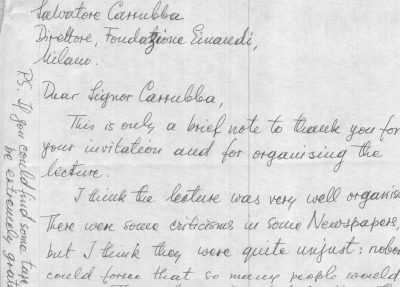 Salvatore Carrubba
Direttore, Fondazione Einaudi,
Milano.
Dear Signor Carrubba,
This is only a brief note to thank you for
your invitation and for organising the
lecture.
I think the lecture was very well organise
There were some criticisms in some Newspapers,
but I think they were quite unjust: nobo
could foresee that so many people would
PS. If you could find some tape
be extremely grat